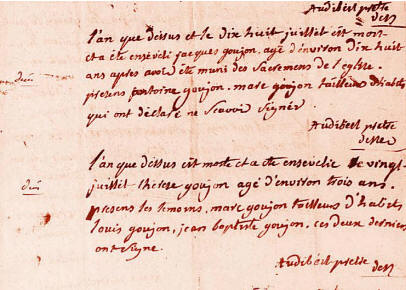 Audibert pretre
l'an que dessus et le dix huit juillet est mort
et a été enseveli jacques goujon, agé d'environ dix huit
ans apres avoir été muni des sacremens de l'eglise.
presens antoine goujon. marc goujon tailleur d'habits
qui ont declaré ne scavoir signer.
Audibert pretre
l'an que dessus est morte et a ete ensevelie le vingt
juillet therese goujon agé d'environ trois ans.
presens les temoins, marc goujon tailleurs d'habit et
louis goujon, jean baptiste goujon, ces deux derniers
ont signe.
Audibert pretre